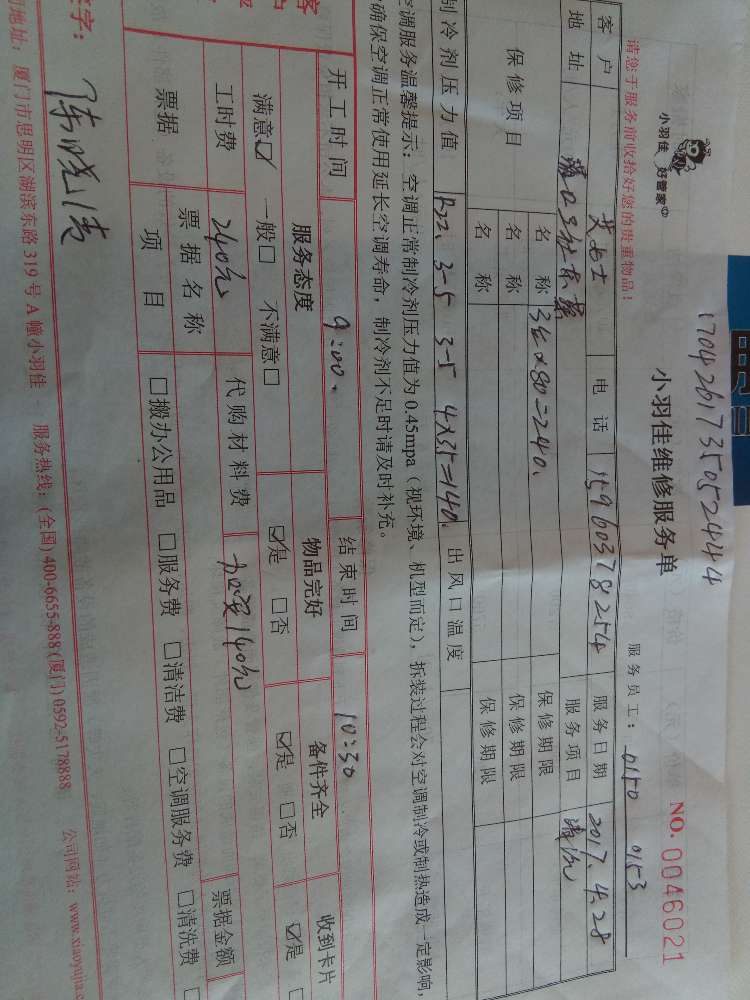 1704261735052444
小羽佳 好管家
小羽佳维修服务单
NO. 0046021
请您于服务前收拾好您的贵重物品!
服务员工: 0150 0153
客户 电话 15960378254 服务日期 2017.4.28
地址 服务项目 清洗
保修项目 名称 3台×80=240. 保修期限
名称 保修期限
名称 保修期限
制冷剂压力值 R22. 3-5 3-5 4×35=140. 出风口温度
空调服务温馨提示: 空调正常制冷剂压力值为0.45mpa (视环境、机型而定), 拆装过程会对空调制冷或制热造成一定影响,
确保空调正常使用延长空调寿命, 制冷剂不足时请及时补充。
开工时间 9:00. 结束时间 10:30
服务态度 物品完好 备件齐全 收到卡片
满意☑ 一般□ 不满意□ ☑是 □否 ☑是 □否 ☑是
工时费 240元 代购材料费 加氟140元
票据 票据名称 票据金额
项目 □搬办公用品 □服务费 □清洁费 □空调服务费 □清洗费
字:
地址: 厦门市思明区湖滨东路319号A幢小羽佳 服务热线: (全国) 400-6655-888 (厦门) 0592-5178888 公司网站: www.xiaoyujia.c